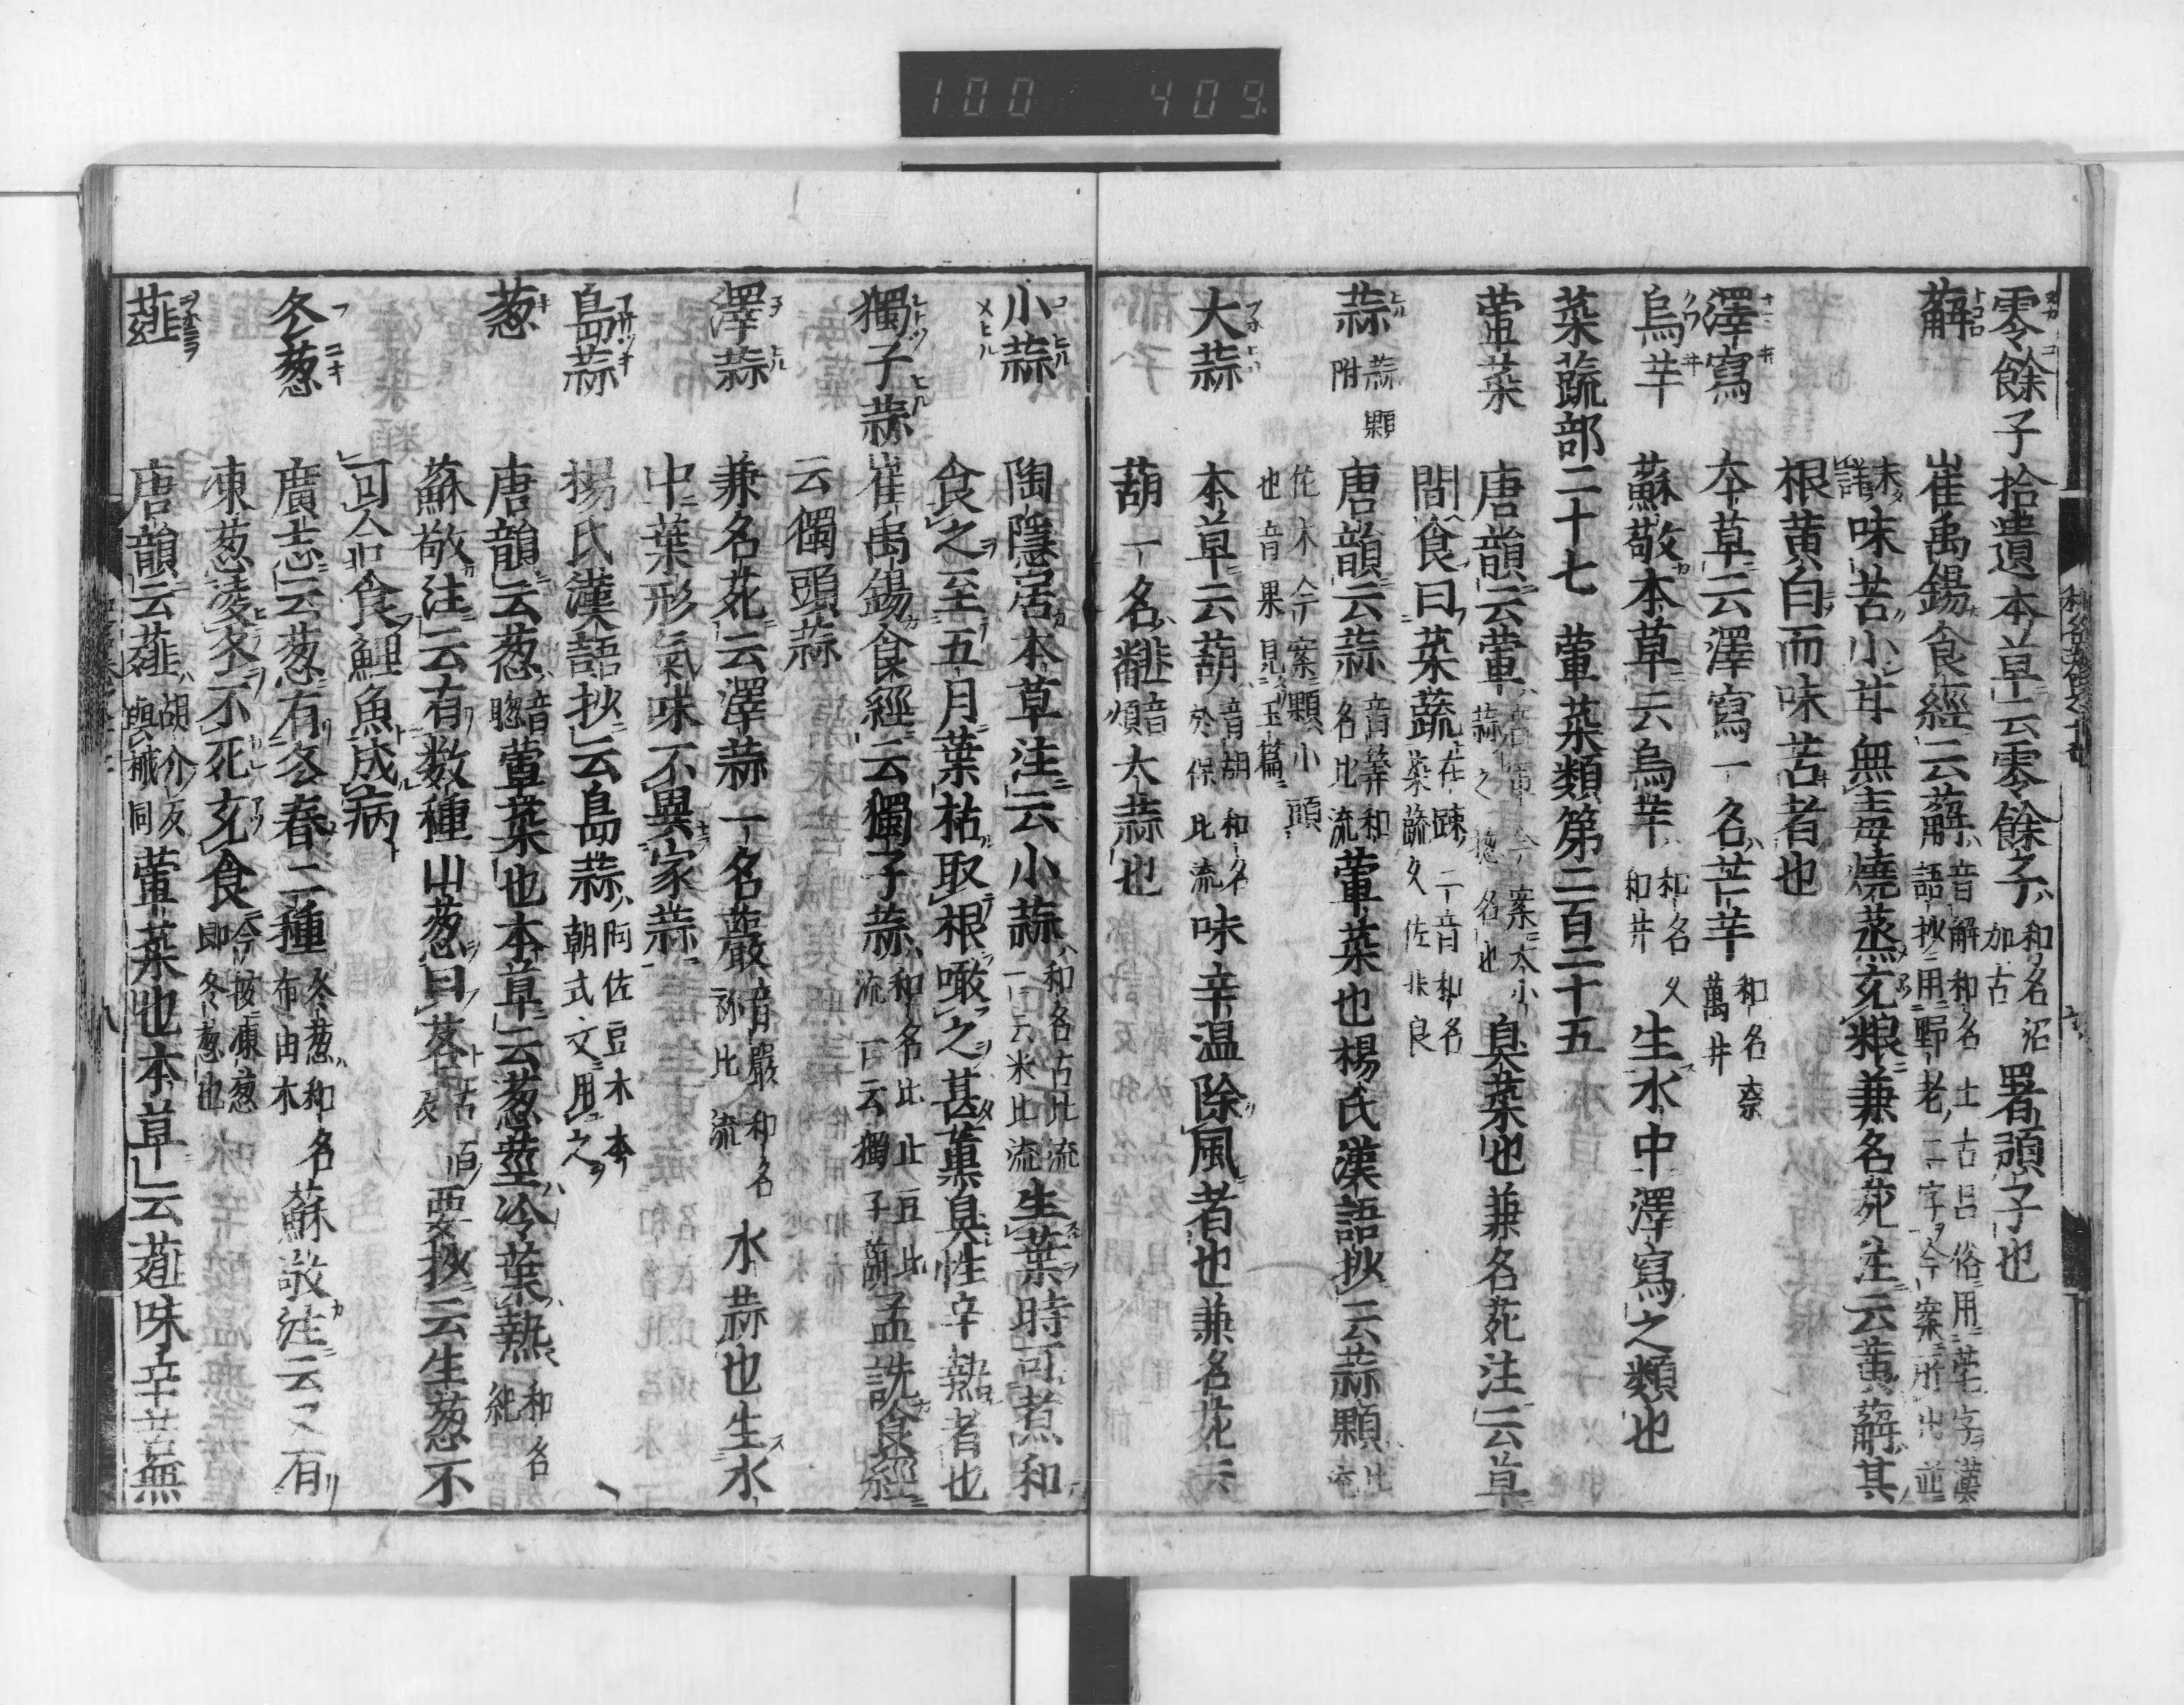 100 409
零餘子 拾遺本草云零餘子 和名沼加古 署預子也
薢 崔禹錫食經云薢 音解和名土古呂俗用𦯬字漢語抄用野老二字今案所出並未詳
味苦小甘無毒燒蒸充粮兼名苑注云黄薢其
根黄白而味苦者也
澤寫 本草云澤寫一名芒芋 和名奈萬井
烏芋 蘇敬本草云烏芋 和名久和井 生水中澤寫之類也
菜蔬部二十七 葷菜類第二百二十五
葷菜 唐韻云葷 音軍今案大小蒜之惣名也 臭菜也兼名苑注云草
間食曰菜蔬 在踈二音和名菜蔬久佐比良
蒜 蒜顆附 唐韻云蒜 音筭和名比流 葷菜也楊氏漢語抄云蒜顆 比流
佐木今案顆小頭也音果見玉篇
大蒜 本草云葫 音胡和名於保比流 味辛温除風者也兼名苑云
葫一名 音煩 大蒜也
小蒜 陶隱居本草注云小蒜 和名古比流一云米比流 生葉時可煮和
食之至五月葉枯取根噉之甚薫臭性辛熱者也
獨子蒜 崔禹錫食經云獨子蒜 和名比止豆比流一云獨子葫 孟詵食經
云獨頭蒜
澤蒜 兼名苑云澤蒜一名巖 音嚴和名祢比流 水蒜也生水
中葉形氣味不異家蒜
島蒜 揚氏漢語抄云島蒜 阿佐豆木本朝式文用之
葱 唐韻云葱 音聰 葷菜也本草云葱莖冷葉熱 和名紀
蘇敬注云有数種山葱曰茖 古百反 要抄云生葱不
可合食鯉魚成病
冬葱 廣志云葱有冬春二種 冬葱和名布由木 蘇敬注云又有
凍葱凌冬不死充食 今按凍葱即冬葱也
薤 唐韻云薤 胡介反與䪥同 葷菜也本草云薤味辛苦無
八